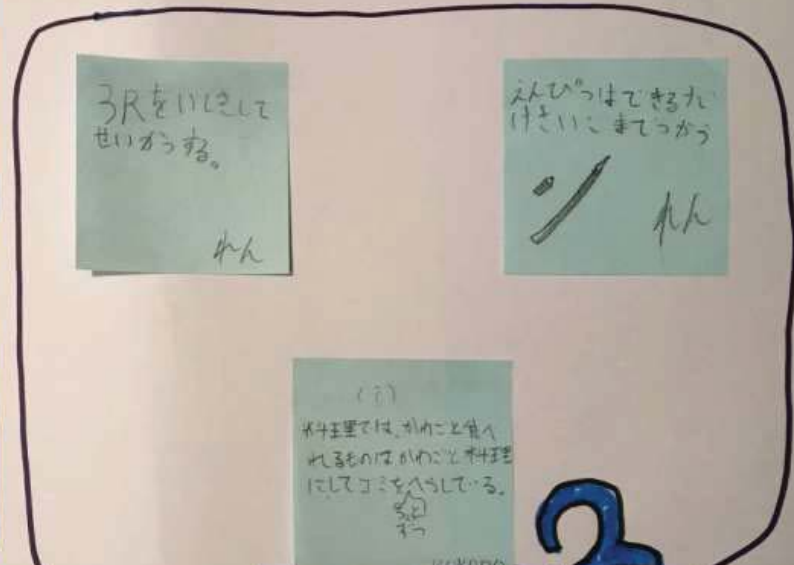 3Rをいしきして
せいかつする。
れん
えんぴつはできるだ
けさいごまでつかう
れん
料理では、かわごと食べ
れるものはかわごと料理
にしてゴミをへらしている。
ちょっと
ずつ